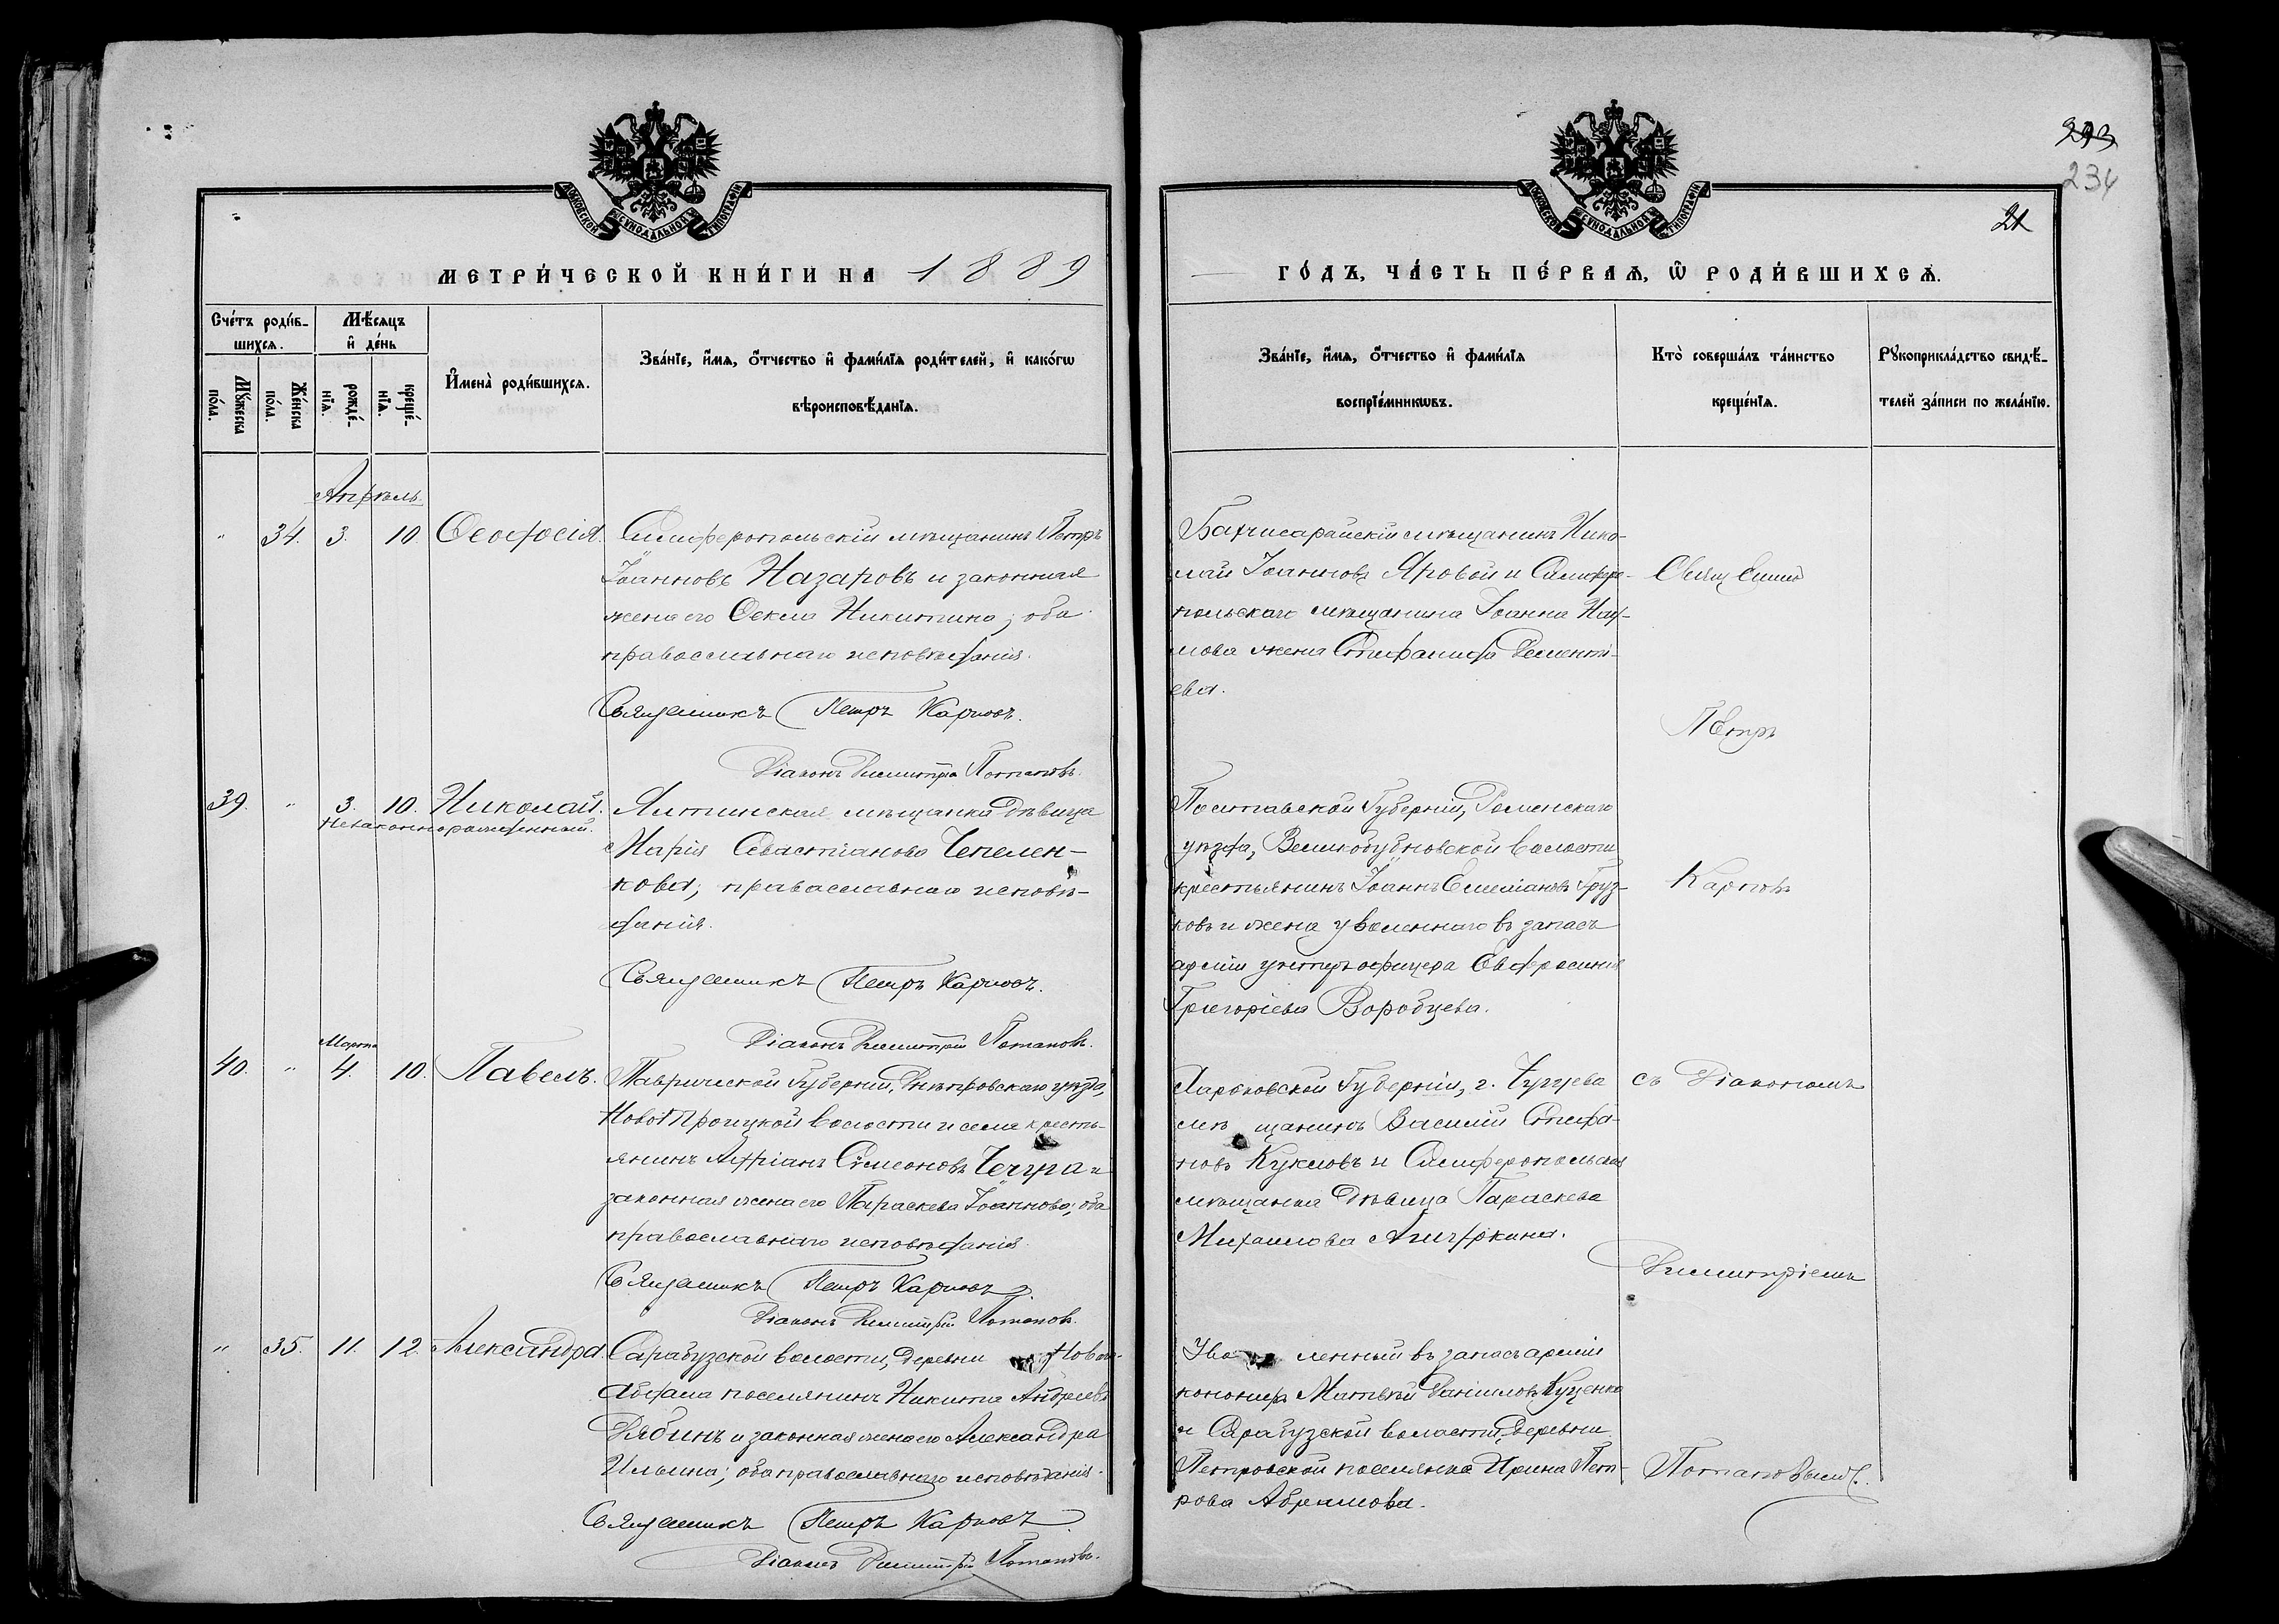 293
234
21
МОСКОВСКОЙ СѴНОДАЛЬНОЙ ТИПОГРАФІИ
МОСКОВСКОЙ СѴНОДАЛЬНОЙ ТИПОГРАФІИ
МЕТРИ́ЧЕСКОЙ КНИ́ГИ НА 1889
ГО́ДЪ, ЧА́СТЬ ПЕ́РВАѦ, Ѡ҆ РОДИ́ВШИХСѦ.
Сче́тъ роди́в-
шихсѧ.
Мꙋ́жеска по́ла.
Же́нска по́ла.
Мѣ́сѧцъ
и҆ де́нь
рожде́-
нїѧ.
креще́-
нїѧ.
И҆мена̀ роди́вшихсѧ.
Зва́нїе, и҆́мѧ, ѻ҆́тчество и҆ фами́лїѧ роди́телей, и҆ како́гѡ
вѣроисповѣ́данїѧ.
Зва́нїе, и҆́мѧ, ѻ҆́тчество и҆ фами́лїѧ
воспрїе́мникѡвъ.
Кто̀ соверша́лъ та́инство
креще́нїѧ.
Рꙋкоприкла́дство свидѣ́-
телей за́писи по жела́нїю.
Апрѣль.
" 34. 3. 10. Ѳеодосія.
Симферопольскій мѣщанинъ Петръ
Іоанновъ Назаровъ и законная
жена его Ѳекла Никитина; оба
православнаго исповѣданія.
Священникъ Петръ Карповъ.
Діаконъ Димитрій Потаповъ.
Бахчисарайскій мѣщанинъ Нико-
лай Іоанновъ Яровой и Симферо-
польскаго мѣщанина Іоанна Нау-
мова жена Степанида Дементі-
ева.
39. " 3. 10. Николай.
Незаконнорожденный.
Ялтинская мѣщанка дѣвица
Марія Севастіанова Чепелен-
кова; православнаго исповѣ-
данія.
Священникъ Петръ Карповъ.
Діаконъ Димитрій Потаповъ.
Полтавской Губерніи, Роменскаго
уѣзда, Великобубновской волости
крестьянинъ Іоаннъ Емеліановъ Груз-
ковъ и жена уволеннаго въ запасъ
арміи унтеръ офицера Евфросинія
Григоріева Воробцева.
Марта
40. " 4. 10. Павелъ.
Таврической Губерніи, Днѣпровскаго уѣзда,
Ново Троицкой волости и села кресть-
янинъ Андріанъ Симеоновъ Чечура и
законная жена его Параскева Іоаннова; оба
православнаго исповѣданія.
Священникъ Петръ Карповъ.
Діаконъ Димитрій Потаповъ.
Харьковской Губерніи, г. Чугуева
мѣщанинъ Василій Стефа-
новъ Куковъ и Симферопольская
мѣщанка дѣвица Параскева
Михаилова
" 35. 11. 12. Александра.
Сарабузской волости, деревни Ново-
Абдала поселянинъ Никита Андреевъ
Рябинъ и законная жена его Александра
Ильина; оба православнаго исповѣданія.
Священникъ Петръ Карповъ.
Діаконъ Димитрій Потаповъ.
Уволенный въ запасъ арміи
канониръ Матвѣй Даніиловъ Куценко
и Сарабузской волости, деревни
Петровской поселянка Ирина Пет-
рова Абрамова.
Священникъ
Петръ
Карповъ
съ Діакономъ
Димитріемъ
Потаповымъ.